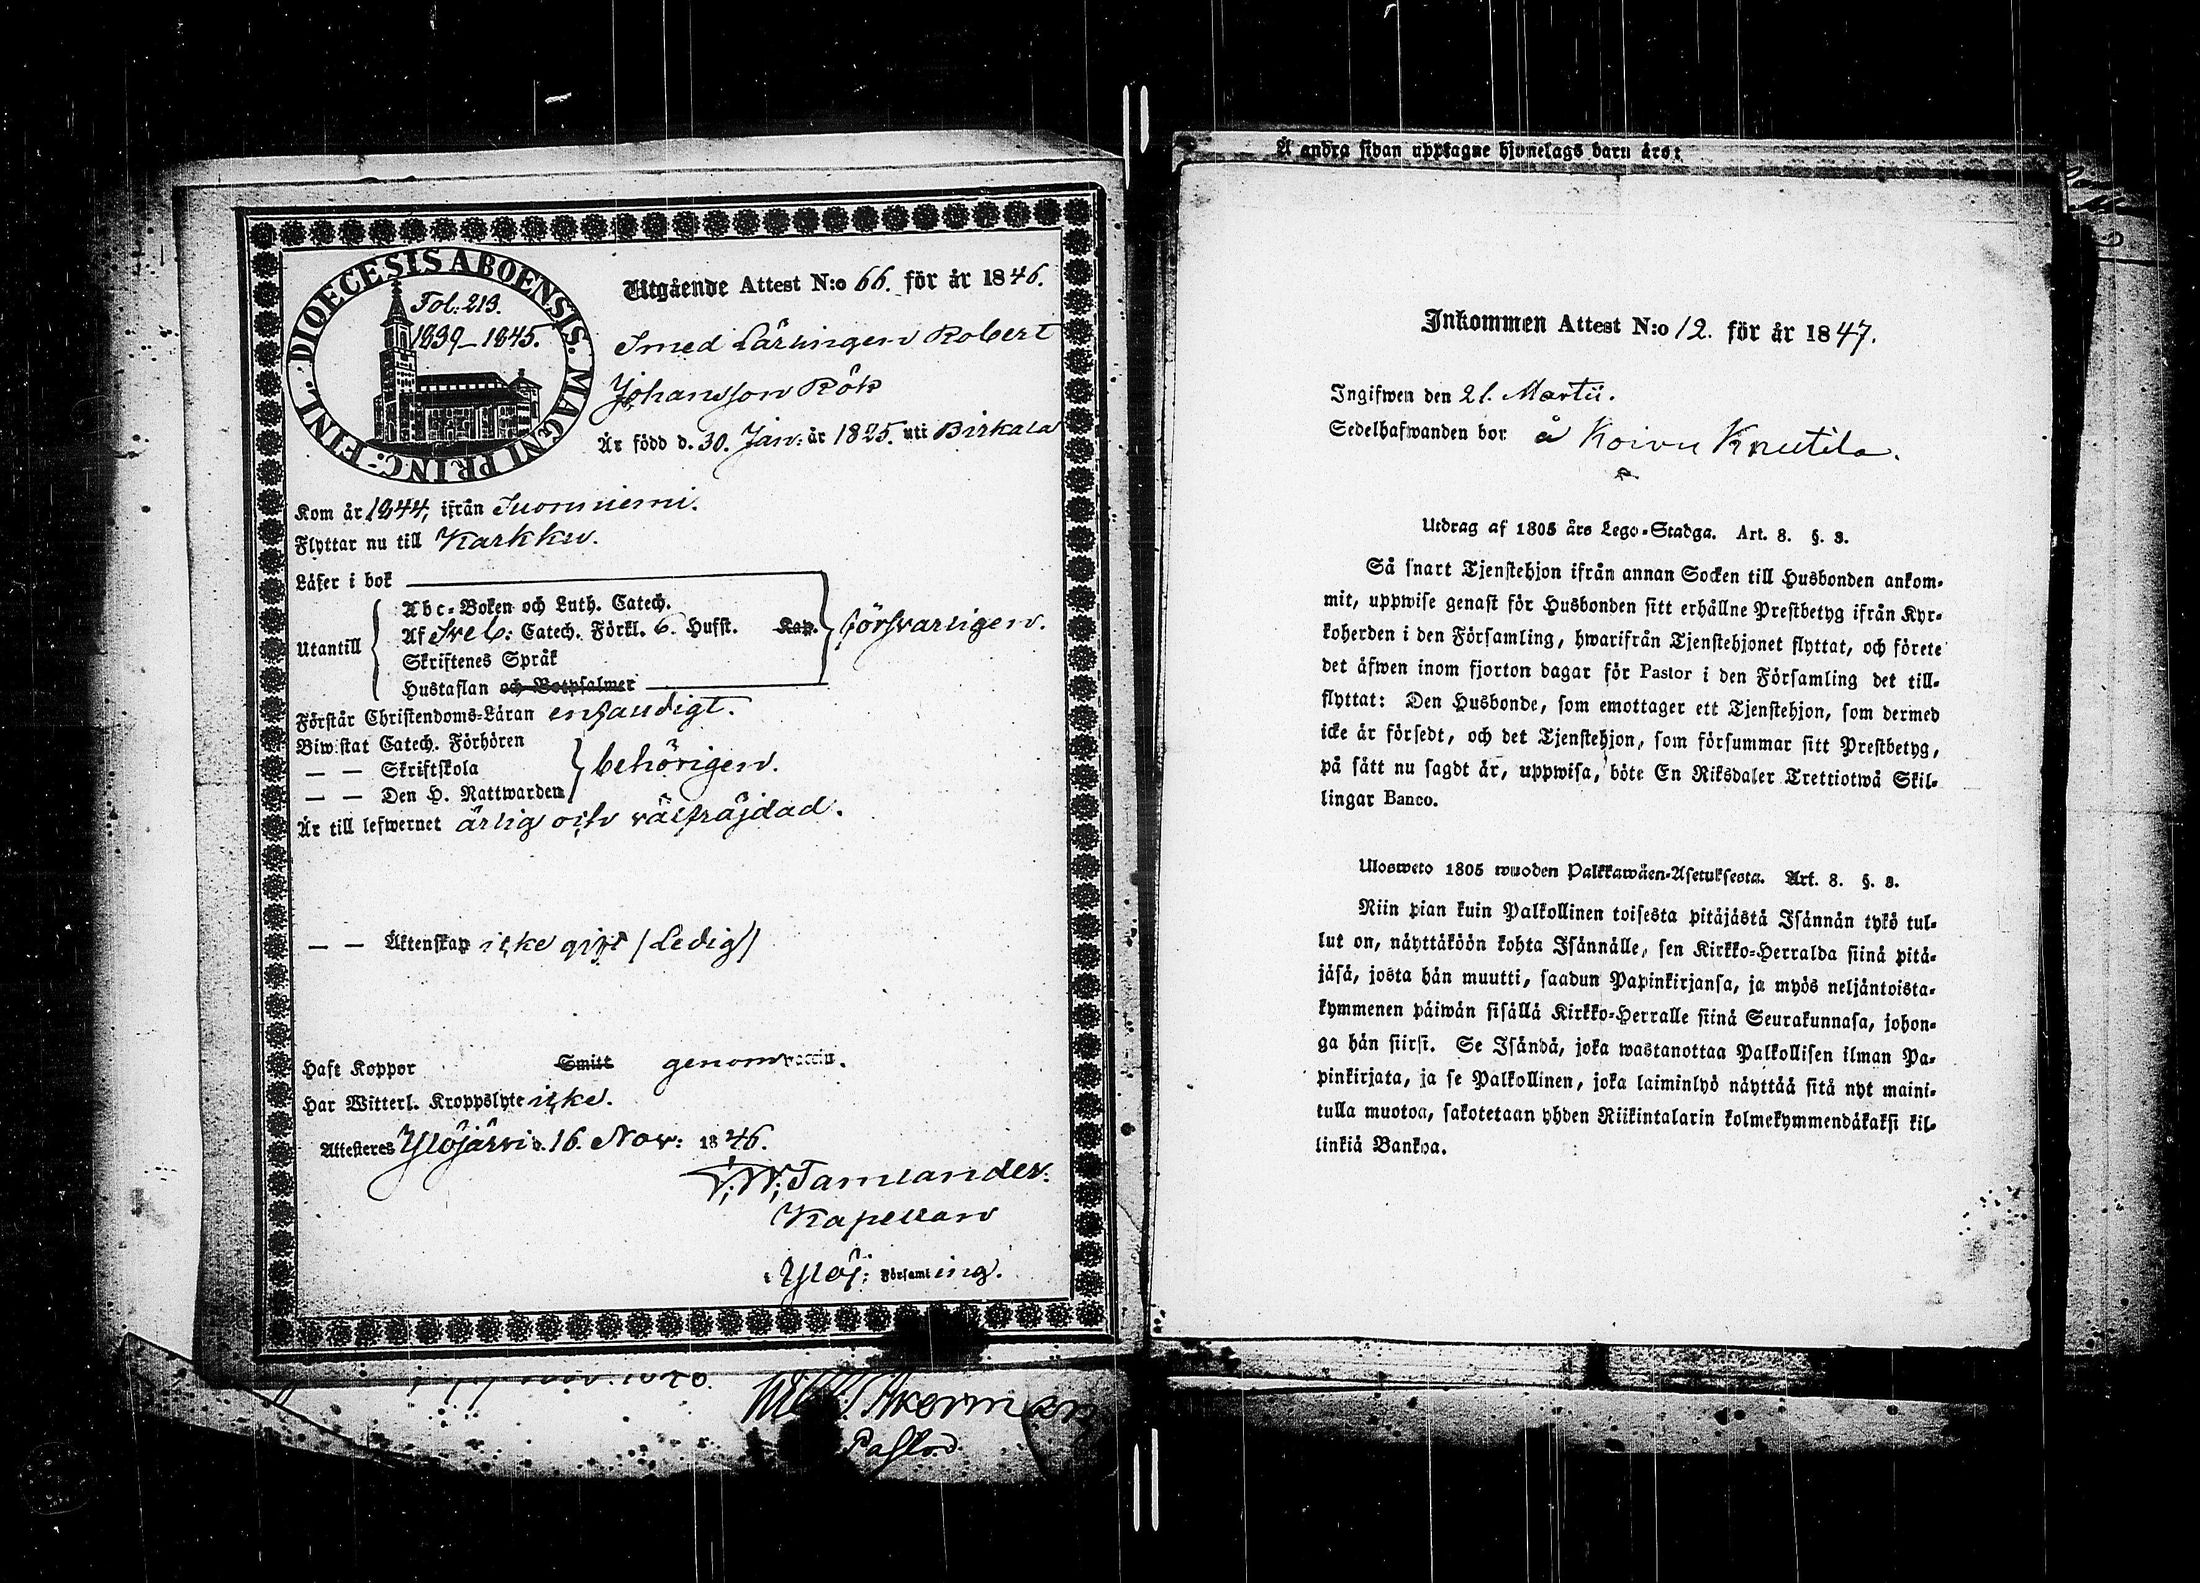 DIOECESIS ABOENSIS. MAGNI PRINC: FINL.
Fol: 213.
1839–1845.
Utgående Attest N:o 66. för år 1846.
Smed Lärlingen Robert
Johansson Rök
Är född d. 30. Jan: år 1825. uti Birkala
Kom år 1844, ifrån Suoniemi.
Flyttar nu till Karkku.
Läser i bok
Utantill
Abc-Boken och Luth. Catech.
Af Sveb: Catech. Förkl. 6. Hufst. Kap. försvarligen.
Skriftenes Språk
Hustaflan och Botpsalmer
Förstår Christendoms-Läran enfaudigt.
Biwistat Catech. Förhören
— — Skriftskola behörigen.
— — Den H. Nattwarden
Är till lefwernet ärlig och välfräjdad.
— — Äktenskap icke gift / Ledig /
Haft Koppor Smitt genom vaccin.
Har Witterl. Kroppslyte icke.
Attesteres Ylöjärvi d. 16. Nov: 1846.
Tamlander.
Kapellan
Ylöj: Församling.
Akerman
Pastor
Å andra sidan upptagne hjonelags barn äro:
Inkommen Attest N:o 12. för år 1847.
Ingifwen den 21. Martii.
Sedelhafwanden bor å Koivu Knutila.
Utdrag af 1805 års Lego-Stadga. Art. 8. §. 3.
Så snart Tjenstehjon ifrån annan Socken till Husbonden ankom-
mit, uppwise genast för Husbonden sitt erhållne Prestbetyg ifrån Kyr-
koherden i den Församling, hwarifrån Tjenstehjonet flyttat, och förete
det äfwen inom fjorton dagar för Pastor i den Församling det till-
flyttat: Den Husbonde, som emottager ett Tjenstehjon, som dermed
icke är försedt, och det Tjenstehjon, som försummar sitt Prestbetyg,
på sätt nu sagdt är, uppwisa, böte En Riksdaler Trettiotwå Skil-
lingar Banco.
Ulosweto 1805 wuoden Palkkawäen-Asetuksesta. Art. 8. §. 3.
Niin pian kuin Palkollinen toisesta pitäjästä Isännän tykö tul-
lut on, näyttäköön kohta Isännälle, sen Kirkko-Herralda siinä pitä-
jäsä, josta hän muutti, saadun Papinkirjansa, ja myös neljäntoista-
kymmenen päiwän sisällä Kirkko-Herralle siinä Seurakunnasa, johon-
ga hän siirsi. Se Isändä, joka wastanottaa Palkollisen ilman Pa-
pinkirjata, ja se Palkollinen, joka laiminlyö näyttää sitä nyt maini-
tulla muotoa, sakotetaan yhden Riikintalarin kolmekymmendäkaksi kil-
linkiä Bankoa.